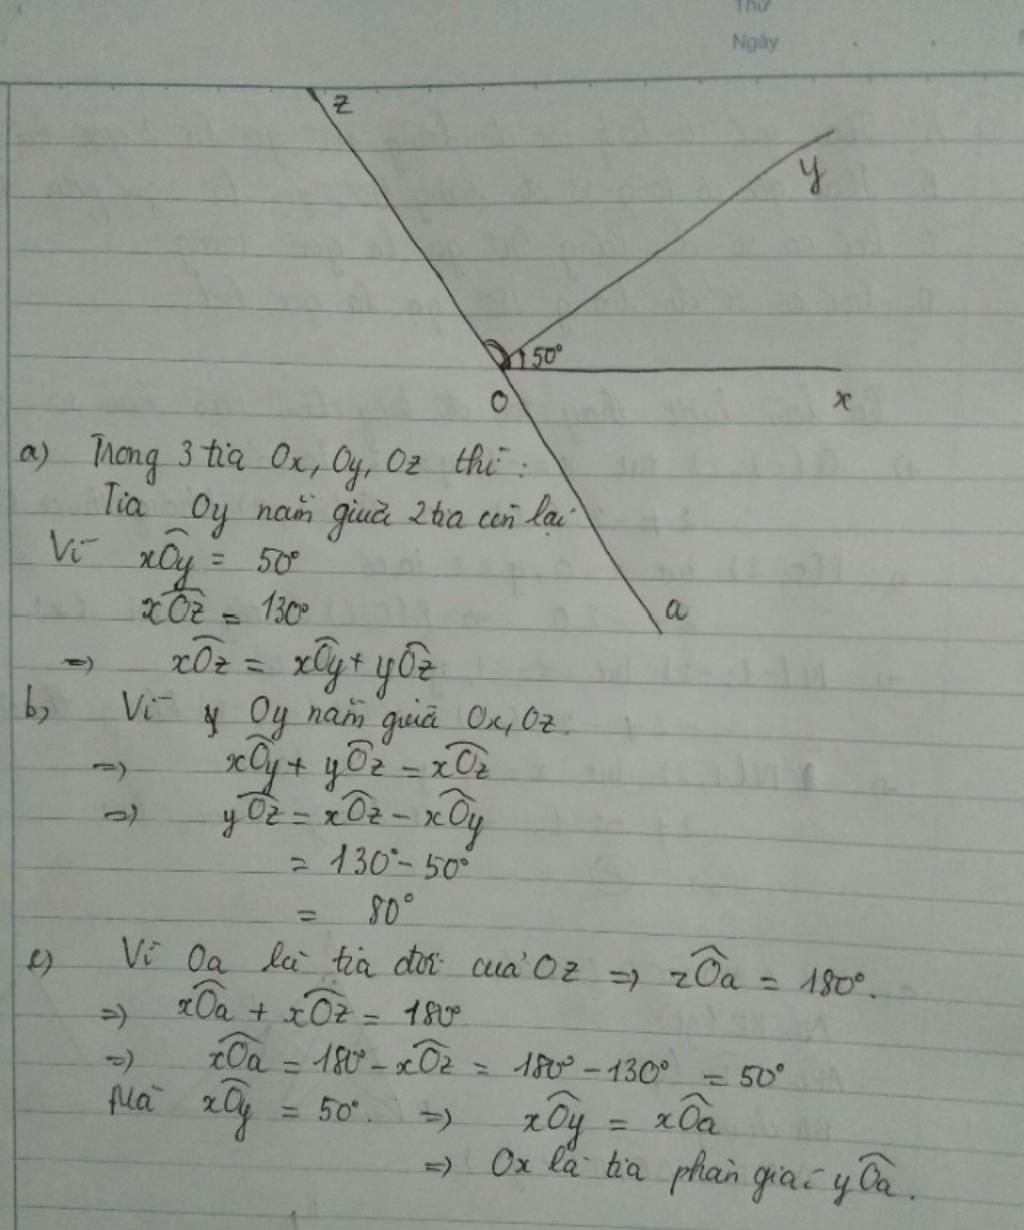 Thứ
Ngày
z
y
50°
O
x
a
a) Trong 3 tia Ox, Oy, Oz thì:
Tia Oy nằm giữa 2 tia còn lại
Vì xÔy = 50°
xÔz = 130°
=> xÔz = xÔy + yÔz
b) Vì Oy nằm giữa Ox, Oz.
=> xÔy + yÔz = xÔz
=> yÔz = xÔz - xÔy
= 130° - 50°
= 80°
c) Vì Oa là tia đối của Oz => zÔa = 180°.
=> xÔa + xÔz = 180°
=> xÔa = 180° - xÔz = 180° - 130° = 50°
Mà xÔy = 50°. => xÔy = xÔa
=> Ox là tia phân giác yÔa.